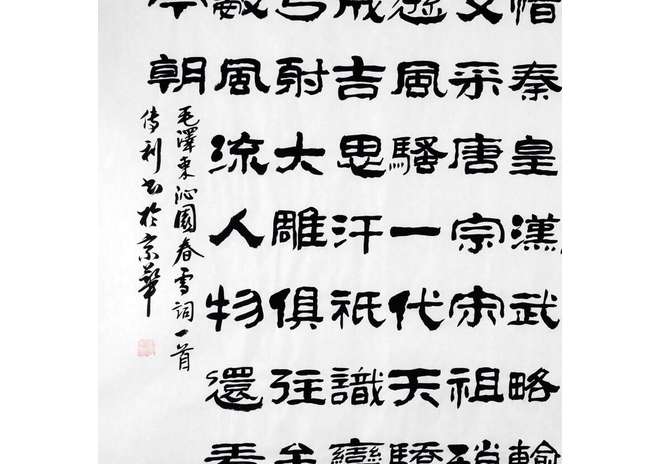 惜秦皇漢武略輸
文采唐宗宋祖稍
遜風騷一代天驕
成吉思汗祇識彎
弓射大雕俱往矣
數風流人物還看
今朝
毛澤東沁園春雪詞一首
傳利書於京華